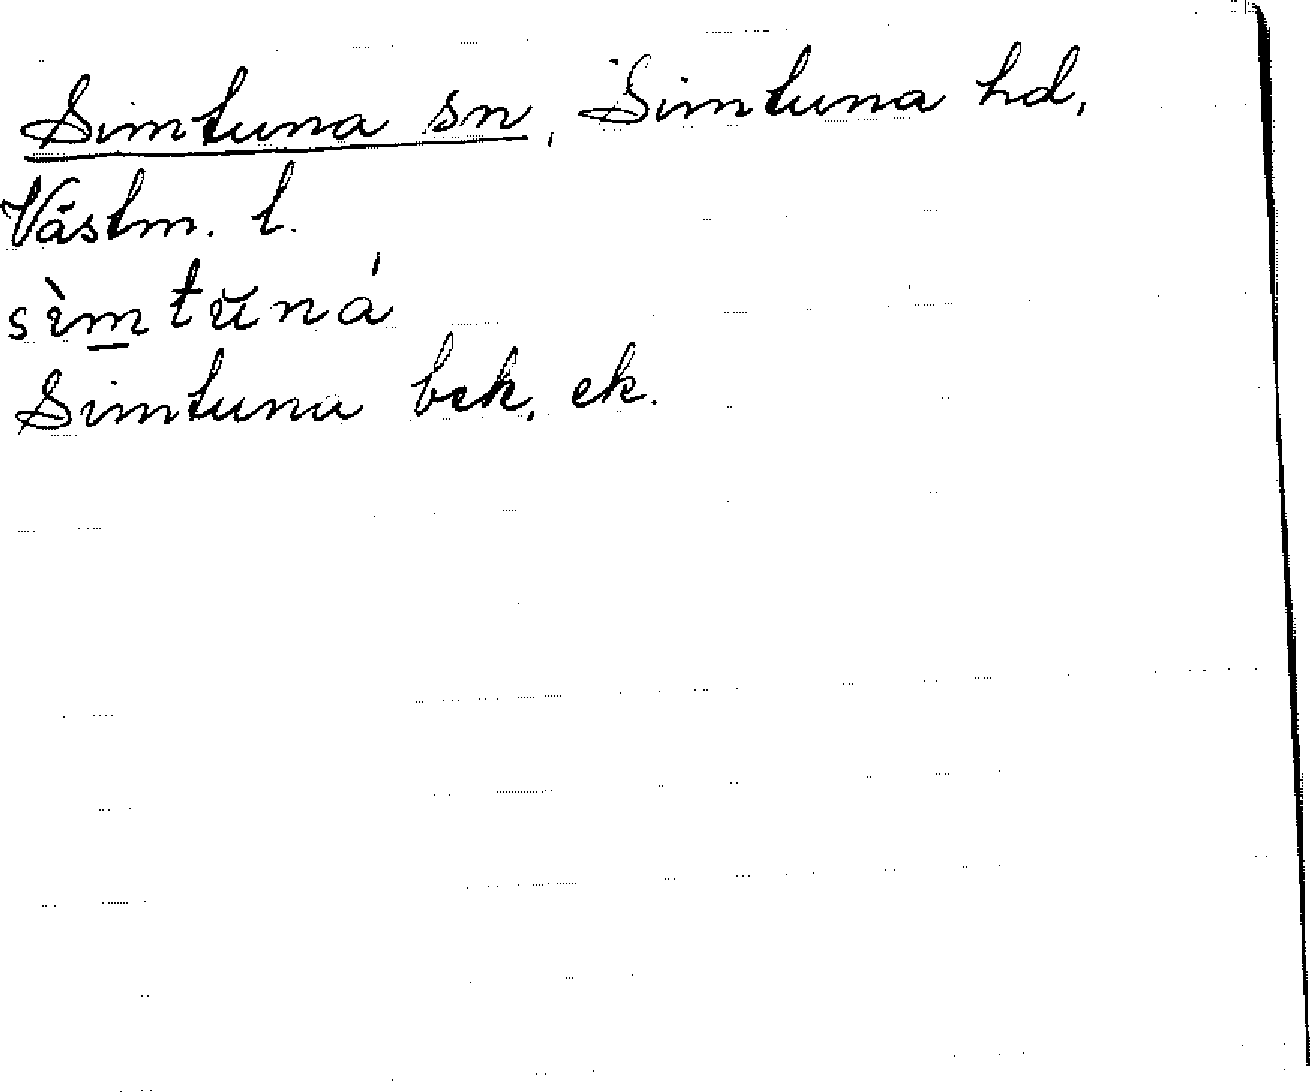 Simtuna sn, Simtuna hd,
Västm. l.
sìmtŭná
Simtuna bek, ek.